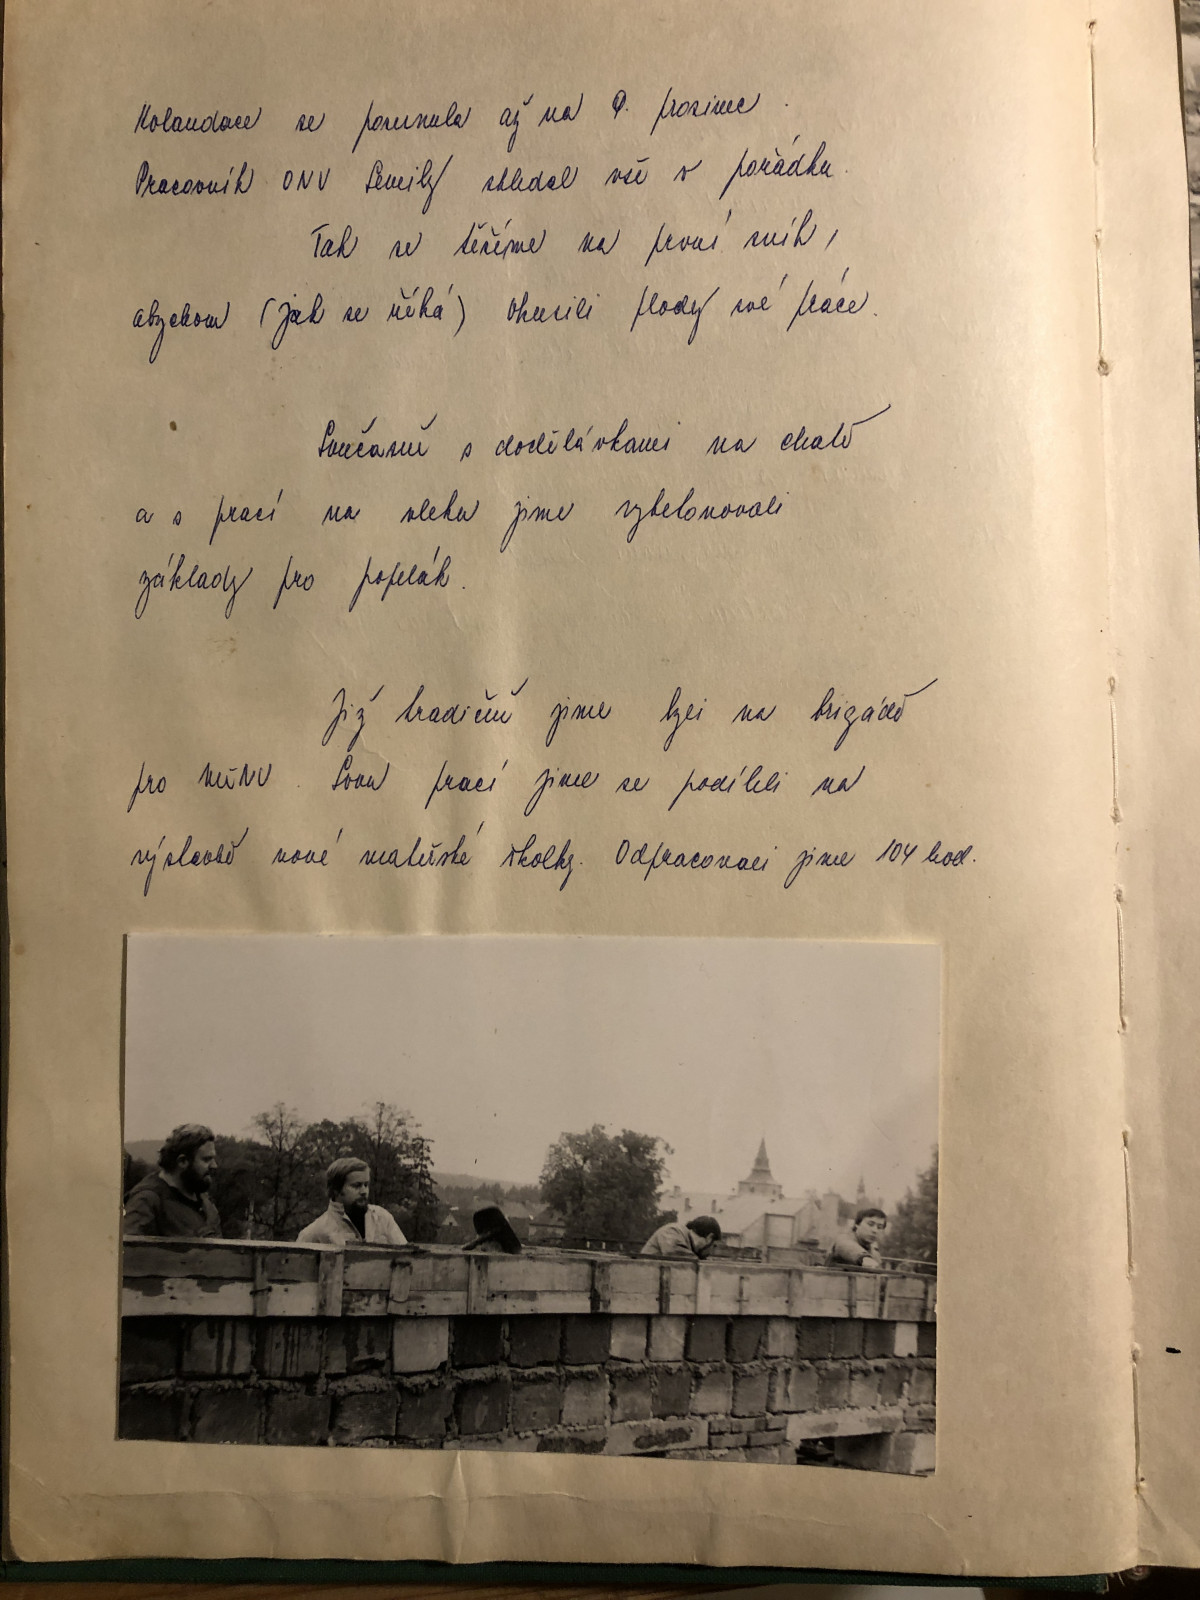 Kolaudace se posunula až na 9. prosinec.
Pracovník ONV Semily shledal vše v pořádku.
Tak se těšíme na první sníh,
abychom (jak se říká) okusili plody své práce.
Současně s dodělávkami na chatě
a s prací na vleku jsme vybetonovali
základy pro popelák.
Již tradičně jsme byli na brigádě
pro MěNV. Svou prací jsme se podíleli na
výstavbě nové mateřské školky. Odpracovali jsme 104 hod.